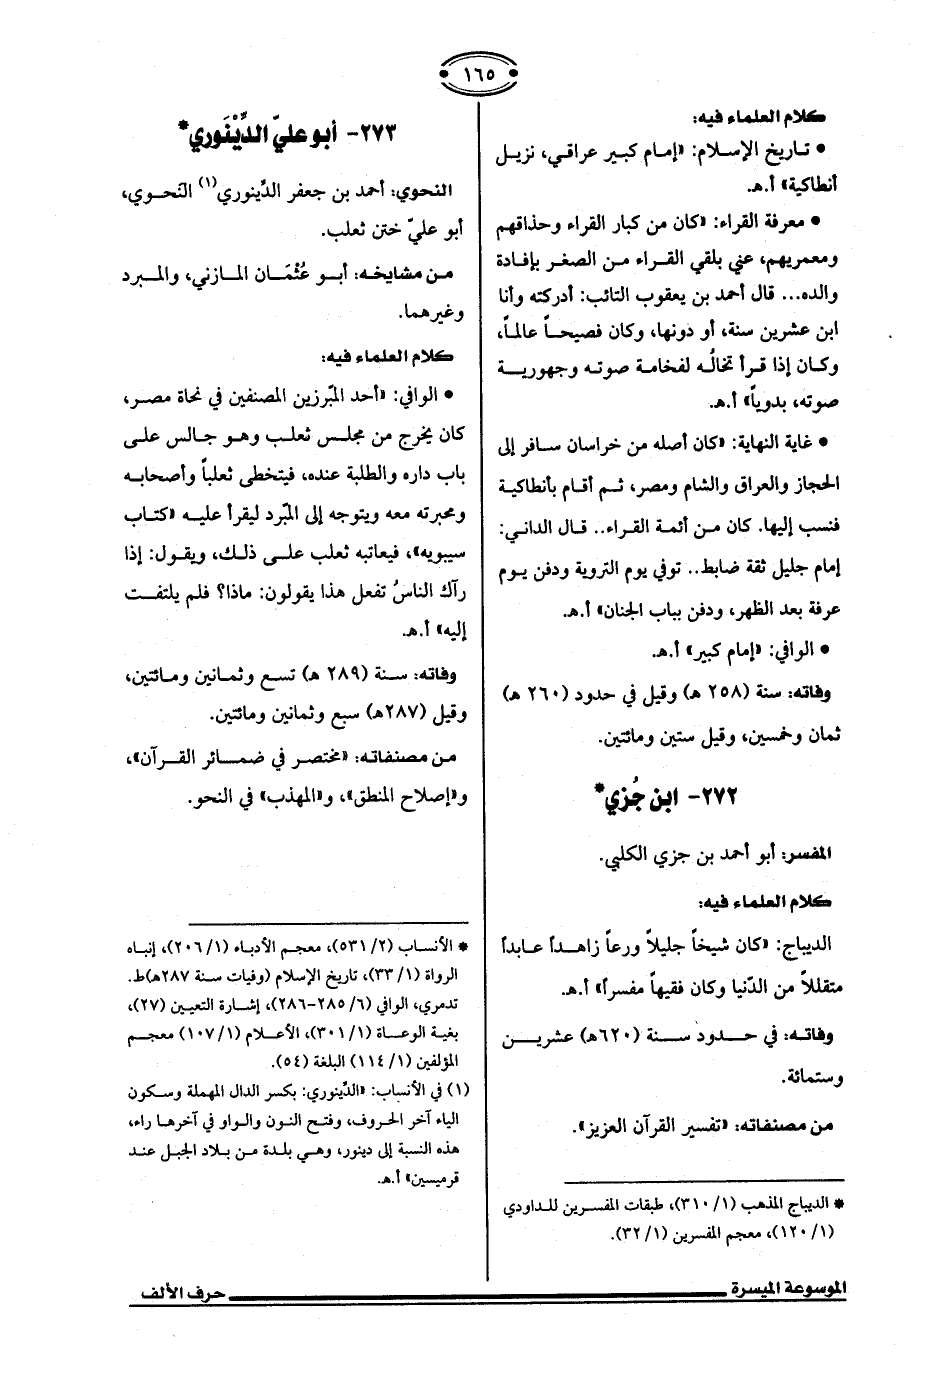 ١٦٥
كلام العلماء فيه:
• تاريخ الإسلام: «إمام كبير عراقي، نزيل
أنطاكية» أ.هـ.
• معرفة القراء: «كان من كبار القراء وحذاقهم
ومعمريهم، عني بلقي القراء من الصغر بإفادة
والده... قال أحمد بن يعقوب التائب: أدركته وأنا
ابن عشرين سنة، أو دونها، وكان فصيحاً عالماً،
وكان إذا قرأ تخالُه لفخامة صوته وجهورية
صوته، بدوياً» أ.هـ.
• غاية النهاية: «كان أصله من خراسان سافر إلى
الحجاز والعراق والشام ومصر، ثم أقام بأنطاكية
فنسب إليها. كان من أئمة القراء.. قال الداني:
إمام جليل ثقة ضابط.. توفي يوم التروية ودفن يوم
عرفة بعد الظهر، ودفن بباب الجنان» أ.هـ.
• الوافي: «إمام كبير» أ.هـ.
وفاته: سنة (٢٥٨ هـ) وقيل في حدود (٢٦٠ هـ)
ثمان وخمسين، وقيل ستين ومائتين.
٢٧٢- ابن جُزي*
المفسر: أبو أحمد بن جزي الكلبي.
كلام العلماء فيه:
الديباج: «كان شيخاً جليلاً ورعاً زاهداً عابداً
متقللاً من الدّنيا وكان فقيهاً مفسراً» أ.هـ.
وفاته: في حدود سنة (٦٢٠هـ) عشرين
وستمائة.
من مصنفاته: «تفسير القرآن العزيز».
* الديباج المذهب (١/ ٣١٠)، طبقات المفسرين للداودي
(١/ ١٢٠)، معجم المفسرين (١/ ٣٢).
٢٧٣- أبو عليّ الدِّيْنَوري*
النحوي: أحمد بن جعفر الدِّينوري(١) النَحوي،
أبو عليّ ختن ثعلب.
من مشايخه: أبو عُثْمَان المازني، والمبرد
وغيرهما.
كلام العلماء فيه:
• الوافي: «أحد المبّرزين المصنفين في نحاة مصر،
كان يخرج من مجلس ثعلب وهو جالس على
باب داره والطلبة عنده، فيتخطى ثعلباً وأصحابه
ومحبرته معه ويتوجه إلى المبّرد ليقرأ عليه «كتاب
سيبويه»، فيعاتبه ثعلب على ذلك، ويقول: إذا
رآك الناسُ تفعل هذا يقولون: ماذا؟ فلم يلتفت
إليه» أ.هـ.
وفاته: سنة (٢٨٩ هـ) تسع وثمانين ومائتين،
وقيل (٢٨٧هـ) سبع وثمانين ومائتين.
من مصنفاته: «مختصر في ضمائر القرآن»،
و«إصلاح المنطق»، و«المهذب» في النحو.
* الأنساب (٢/ ٥٣١)، معجم الأدباء (١/ ٢٠٦)، إنباه
الرواة (١/ ٣٣)، تاريخ الإسلام (وفيات سنة ٢٨٧هـ)ط.
تدمري، الوافي (٦/ ٢٨٥-٢٨٦)، إشارة التعيين (٢٧)،
بغية الوعاة (١/ ٣٠١)، الأعلام (١/ ١٠٧) معجم
المؤلفين (١/ ١١٤) البلغة (٥٤).
(١) في الأنساب: «الدِّينوري: بكسر الدال المهملة وسكون
الياء آخر الحروف، وفتح النون والواو في آخرها راء،
هذه النسبة إلى دينور، وهي بلدة من بلاد الجبل عند
قرميسين» أ.هـ.
الموسوعة الميسرة
حرف الألف